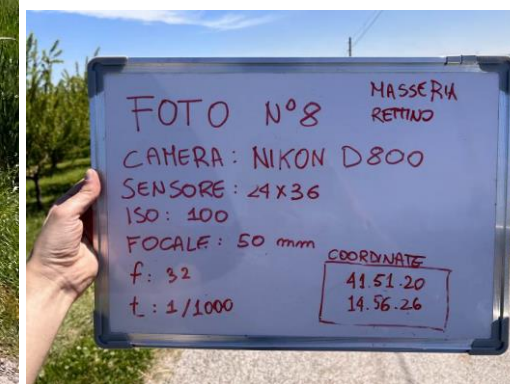 FOTO N°8
MASSERIA
RETTINO
CAMERA: NIKON D800
SENSORE: 24X36
ISO: 100
FOCALE: 50 mm
f: 32
t: 1/1000
COORDINATE
41.51.20
14.56.26